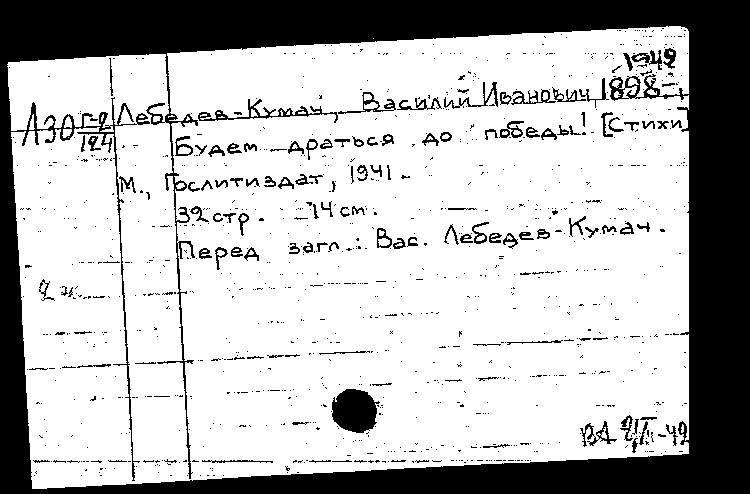 1949
Л30 Г-2/124 Лебедев-Кумач, Василий Иванович 1898-,
Будем драться до победы! [Стихи]
М., Гослитиздат, 1941.
32 стр. 14 см.
Перед загл.: Вас. Лебедев-Кумач.
2 эк.
ВА -49